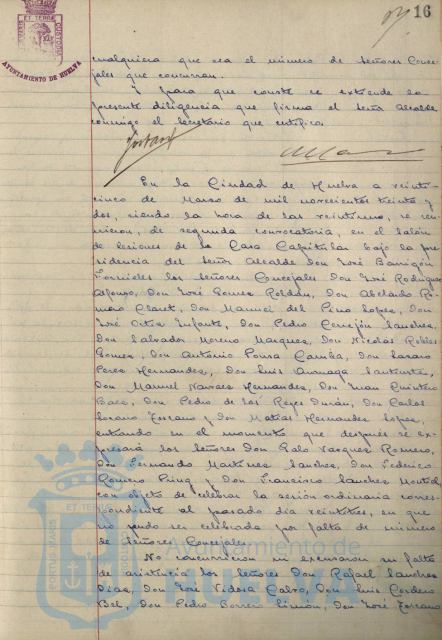 16
ET TERRA CUSTODIA
AYUNTAMIENTO DE HUELVA
cualquiera que sea el número de Señores Conce-
jales que concurran.
Y para que conste se extiende la
presente diligencia que firma el Señor Alcalde
conmigo el Secretario que certifico.
En la Ciudad de Huelva a veinti-
cinco de Marzo de mil novecientos treinta y
dos, siendo la hora de las veintiuna, se reu-
nieron, de segunda convocatoria, en el salón
de sesiones de la Casa Capitular bajo la pre-
sidencia del Señor Alcalde Don José Barrigón
Fornieles los Señores Concejales Don José Rodríguez
Alfonso, Don José Gómez Roldán, Don Abelardo Ro-
mero Claret, Don Manuel del Pino López, Don
José Ortiz Infante, Don Pedro Cerrejón Sánchez,
Don Salvador Moreno Márquez, Don Nicolás Robles
Gómez, Don Antonio Pousa Camba, Don Lázaro
Pérez Hernández, Don Luis
Don Manuel Narváez Hernández, Don Juan Quintero
Báez, Don Pedro de los Reyes Durán, Don Carlos
Lozano Toscano y Don Matías Hernández López,
entrando en el momento que después se ex-
presará los Señores Don Galo Vázquez Romero,
Don Fernando Martínez Sánchez, Don Federico
Romero Puig y Don Francisco Sánchez
con objeto de celebrar la sesión ordinaria corres-
pondiente al pasado día veintitrés, en que
no pudo ser celebrada por falta de número
de Señores Concejales.
No concurrieron ni excusaron su falta
de asistencia los Señores Don Rafael Sánchez
Díaz, Don José Vidosa Calvo, Don Luis Cordero
Bel, Don Pedro Borrero Limón, Don José Toscano
PORTUS MARIS ET TERRAE
Ayuntamiento de
HUELVA